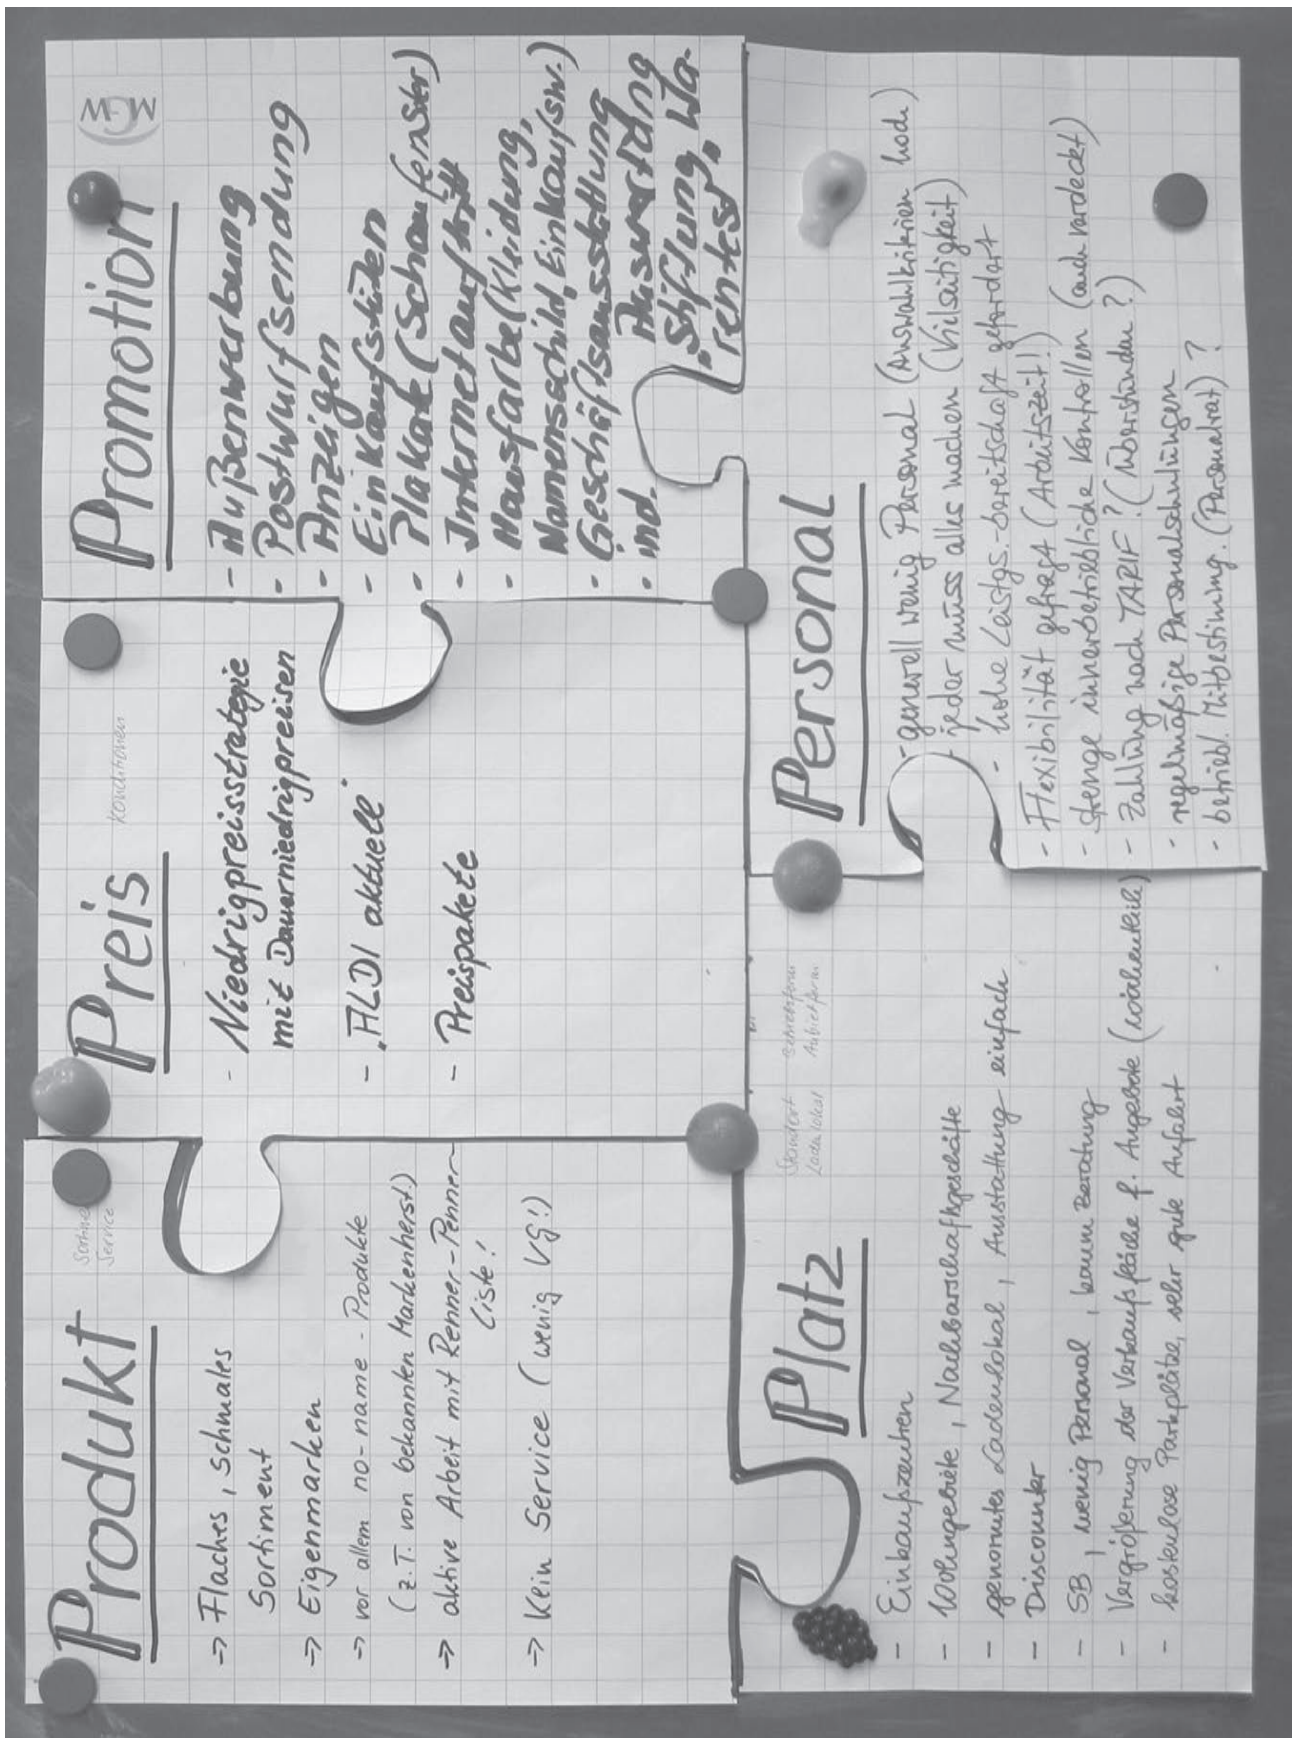 Produkt
Service
→ Flaches, schmales
Sortiment
→ Eigenmarken
→ vor allem no-name-Produkte
(z.T. von bekannten Markenherst)
→ aktive Arbeit mit Renner-Penner-
Liste!
→ Kein Service (wenig VG!)
Preis
Konditionen
- Niedrigpreisstrategie
mit Dauerniedrigpreisen
- "ALDI aktuell"
- Preispakete
Promotion
MGW
- Außenwerbung
- Postwurfsendung
- Anzeigen
- Einkaufstüten
- Plakate (Schaufenster)
- Internetauftritt
- Hausfarbe (Kleidung,
Namensschild, Einkaufsw.)
- Geschäftsausstattung
- ind. Auswertung
"Stiftung Wa-
rentest"
Platz
Standort Betriebsform
Ladenlokal Anbietform
- Einkaufszentren
- Wohngebiete, Nachbarschaftsgeschäfte
- genormtes Ladenlokal, Ausstattung einfach
- Discounter
- SB, wenig Personal, kaum Beratung
- Vergrößerung der Verkaufsfläche f. Angebote (wöchentlich)
- kostenlose Parkplätze, sehr gute Anfahrt
Personal
- generell wenig Personal (Auswahlkriterien hoch)
- jeder muss alles machen (Vielseitigkeit)
- hohe Leistgs.-bereitschaft gefordert
- Flexibilität gefragt (Arbeitszeit!)
- strenge innerbetriebliche Kontrollen (auch verdeckt)
- Zahlung nach TARIF? (Überstunden?)
- regelmäßige Personalschulungen
- betriebl. Mitbestimmg. (Personalrat)?